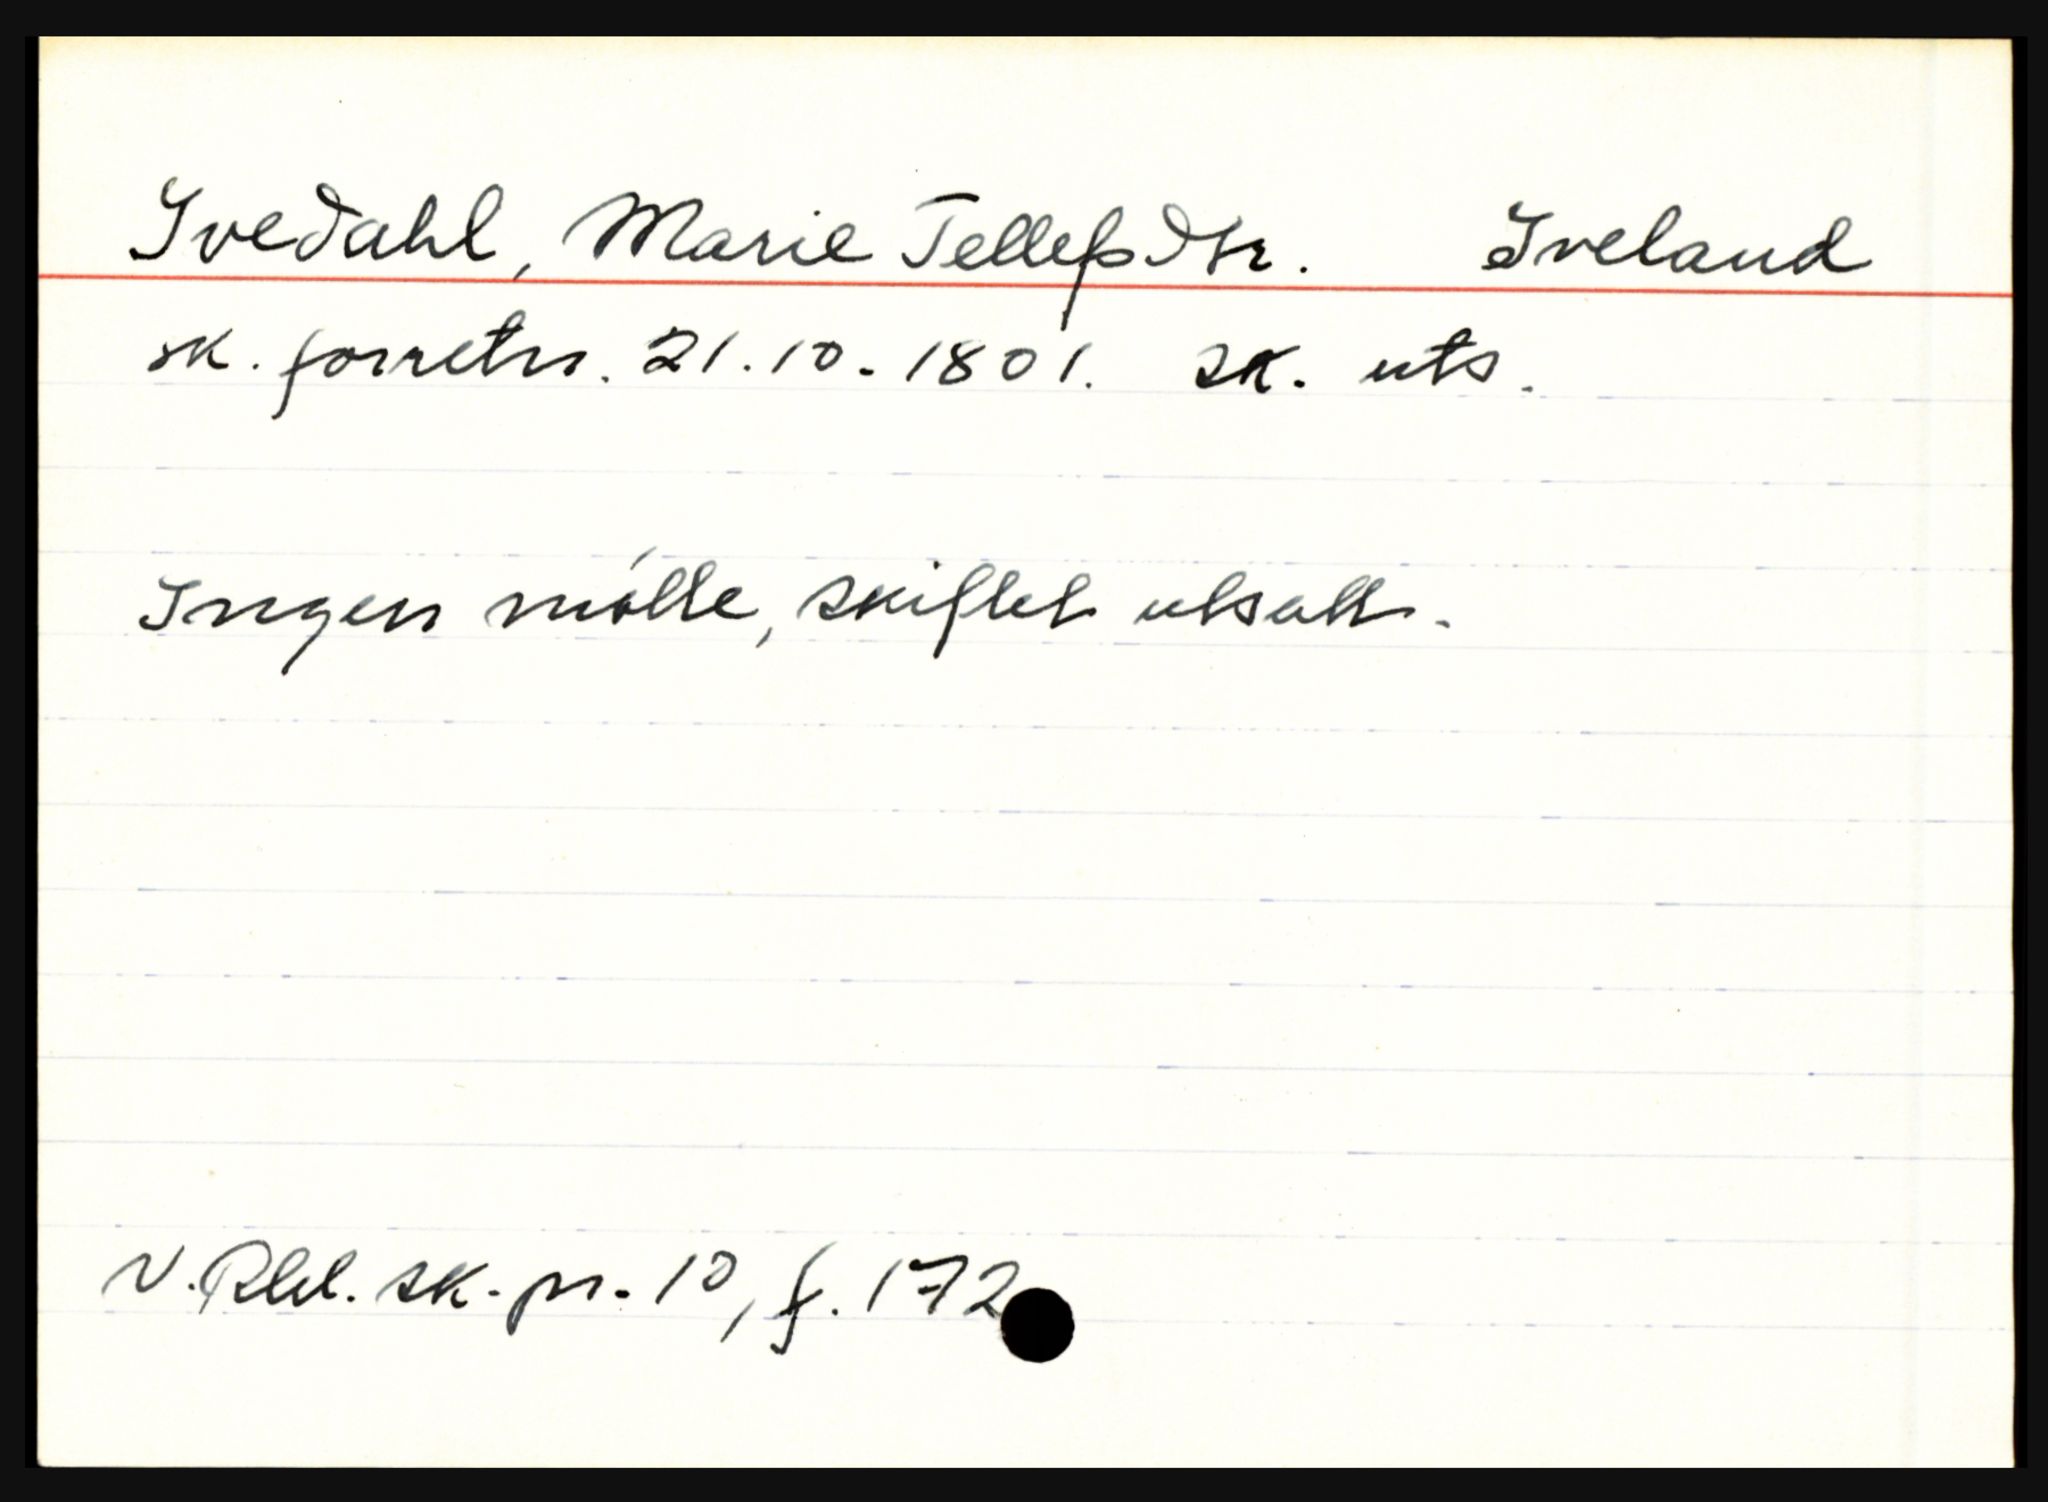 Ivedahl, Marie Tellefsdtr. Iveland
sk. forretn. 21.10.1801. sk. uts.
Ingen møtte, skiftet utsatt.
N. Rbl. sk. pr. 10, f. 172